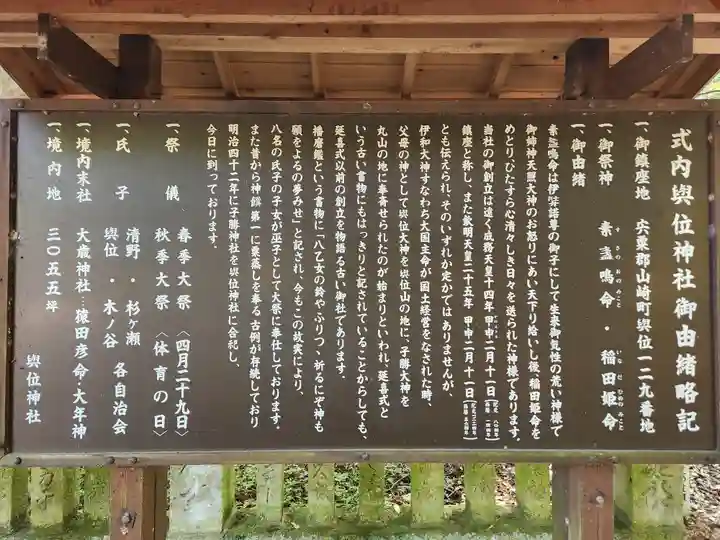 式内與位神社御由緒略記
一、御鎮座地　宍粟郡山崎町與位一二九番地
一、御祭神　素盞嗚命・稲田姫命
すさのおのみこと　いなだひめのみこと
一、御由緒
素盞嗚命は伊弉諾尊の御子にして生来御気性の荒い神様で
御姉神天照大神のお怒りにあい天下り給いし後、稲田姫命を
めとり、ひたすら心清々しき日々を送られた神様であります。
当社の御創立は遠く成務天皇十四年甲申二月十一日
鎮座と称し、また欽明天皇二十五年甲申二月十一日
とも伝えられ、そのいずれか定かではありませんが、
伊和大神すなわち大国主命が国土経営をなされた時、
父母の神として與位大神を與位山の地に、子勝大神を
丸山の地に奉斎せられたのが始まりといわれ、延喜式と
いう古い書物にもはっきりと記されていることからしても、
延喜式以前の創立を物語る古い御社であります。
播磨鑑という書物に「八乙女の鈴やふりつゝ祈るにぞ神も
願をよるの夢みせ」と記され、今もこの故実により、
八名の氏子の子女が巫子として大祭に奉仕しております。
また昔から神饌第一に粟蒸しを奉る古例が存続しており
明治四十二年に子勝神社を與位神社に合祀し、
今日に到っております。
一、祭儀　春季大祭〈四月二十九日〉
秋季大祭〈体育の日〉
一、氏子　清野・杉ヶ瀬　各自治会
與位・木ノ谷
一、境内末社　大歳神社…猿田彦命・大年神
一、境内地　三〇五五坪
與位神社